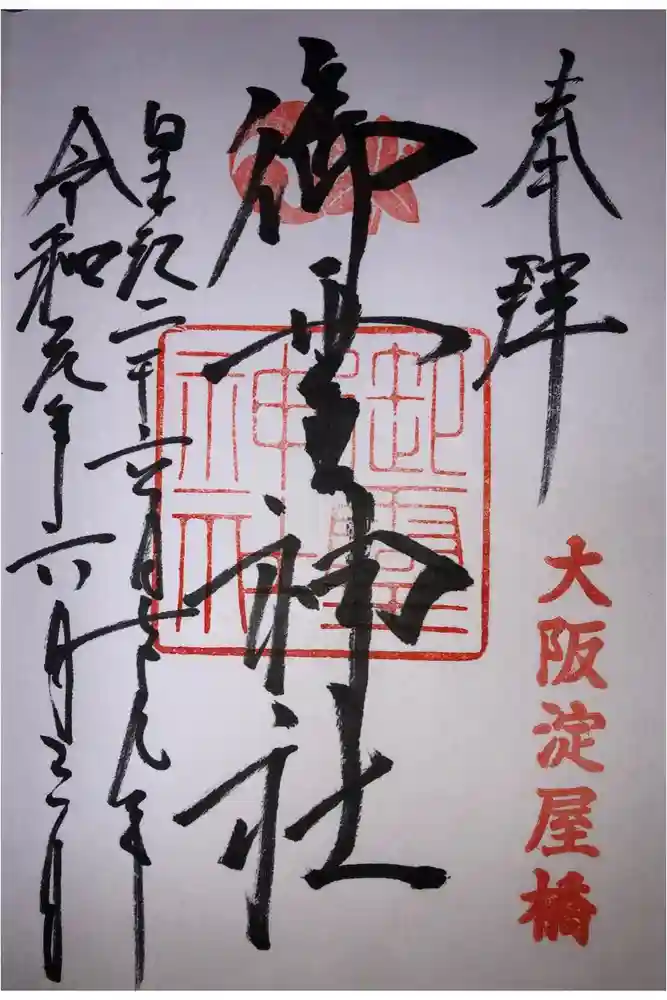 奉拝
大阪淀屋橋
御霊神社
御霊神社
皇紀二千六百七十九年
令和元年六月三日